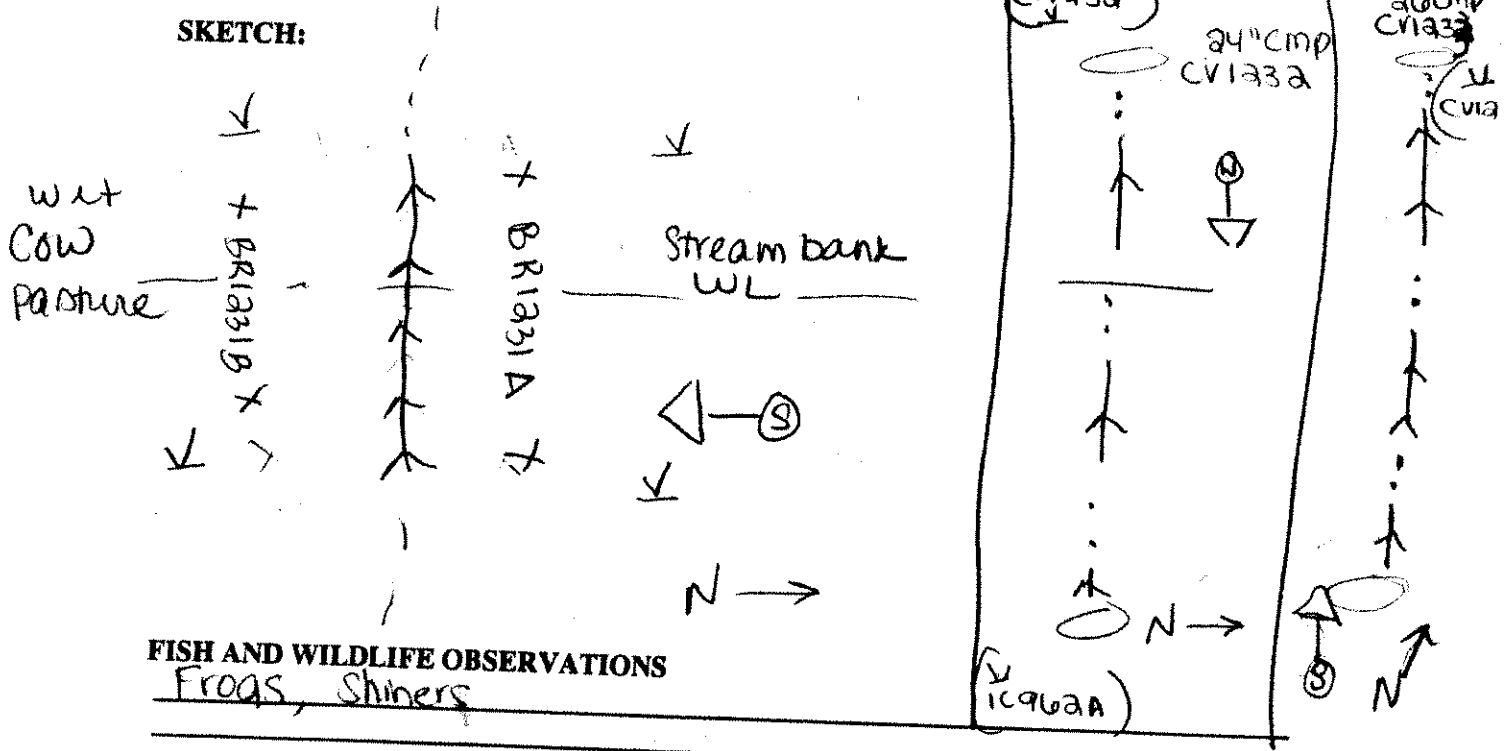 SKETCH:
wet
Cow
pasture
BR1231B
BR1231A
Stream bank
WL
S
N
24" Cmp
CV1232
N
N
1C962A
CV1232
S
N
FISH AND WILDLIFE OBSERVATIONS
Frogs, Shiners